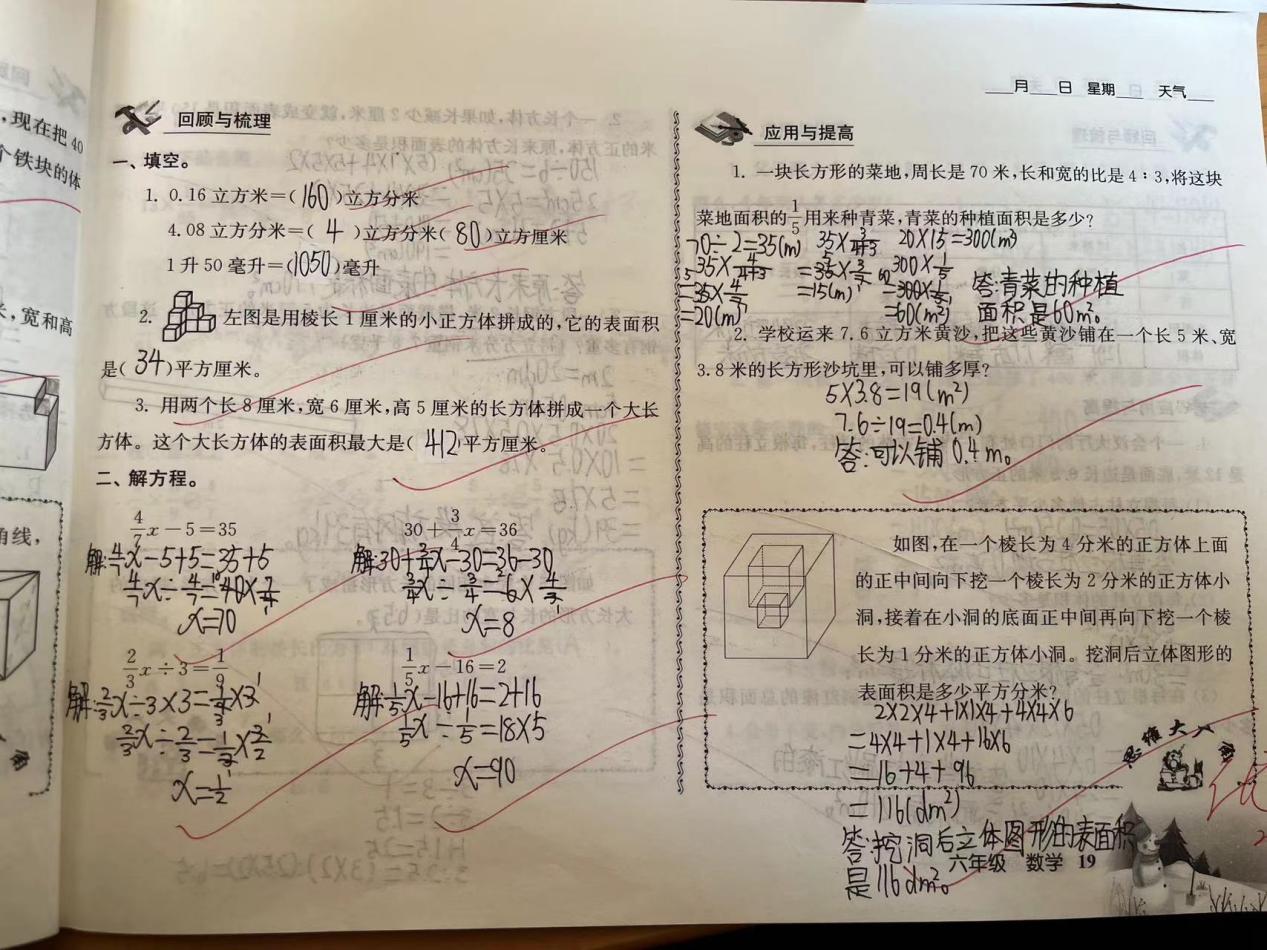 ,现在把 40
个铁块的体
宽和高
角线,
月 日 星期 天气
回顾与梳理
一、填空。
1. 0.16 立方米=( 160 )立方分米
4.08 立方分米=( 4 )立方分米( 80 )立方厘米
1 升 50 毫升=( 1050 )毫升
2. 左图是用棱长 1 厘米的小正方体拼成的,它的表面积
是( 34 )平方厘米。
3. 用两个长 8 厘米,宽 6 厘米,高 5 厘米的长方体拼成一个大长
方体。这个大长方体的表面积最大是( 412 )平方厘米。
二、解方程。
4/7 x-5=35 30+3/4 x=36
解:4/7x-5+5=35+5 解:30+3/4x-30=36-30
4/7x÷4/7=40×7/4 3/4x÷3/4=6×4/3
x=70 x=8
2/3 x÷3=1/9 1/5 x-16=2
解:2/3x÷3×3=1/9×3 解:1/5x-16+16=2+16
2/3x÷2/3=1/3×3/2 1/5x÷1/5=18×5
x=1/2 x=90
应用与提高
1. 一块长方形的菜地,周长是 70 米,长和宽的比是 4:3,将这块
菜地面积的1/5用来种青菜,青菜的种植面积是多少?
70÷2=35(m) 35×3/4+3 20×15=300(m²)
35×4/4+3 =35×3/7 300×1/5
=35×4/7 =15(m) =300×1/5 答:青菜的种植
=20(m) =60(m²) 面积是60m²。
2. 学校运来 7.6 立方米黄沙,把这些黄沙铺在一个长 5 米、宽
3.8 米的长方形沙坑里,可以铺多厚?
5×3.8=19(m²)
7.6÷19=0.4(m)
答:可以铺0.4m。
如图,在一个棱长为 4 分米的正方体上面
的正中间向下挖一个棱长为 2 分米的正方体小
洞,接着在小洞的底面正中间再向下挖一个棱
长为 1 分米的正方体小洞。挖洞后立体图形的
表面积是多少平方分米?
2×2×4+1×1×4+4×4×6
=4×4+1×4+16×6
=16+4+96
=116(dm²)
答:挖洞后立体图形的表面积
是116dm²。
思维大
六年级 数学 19